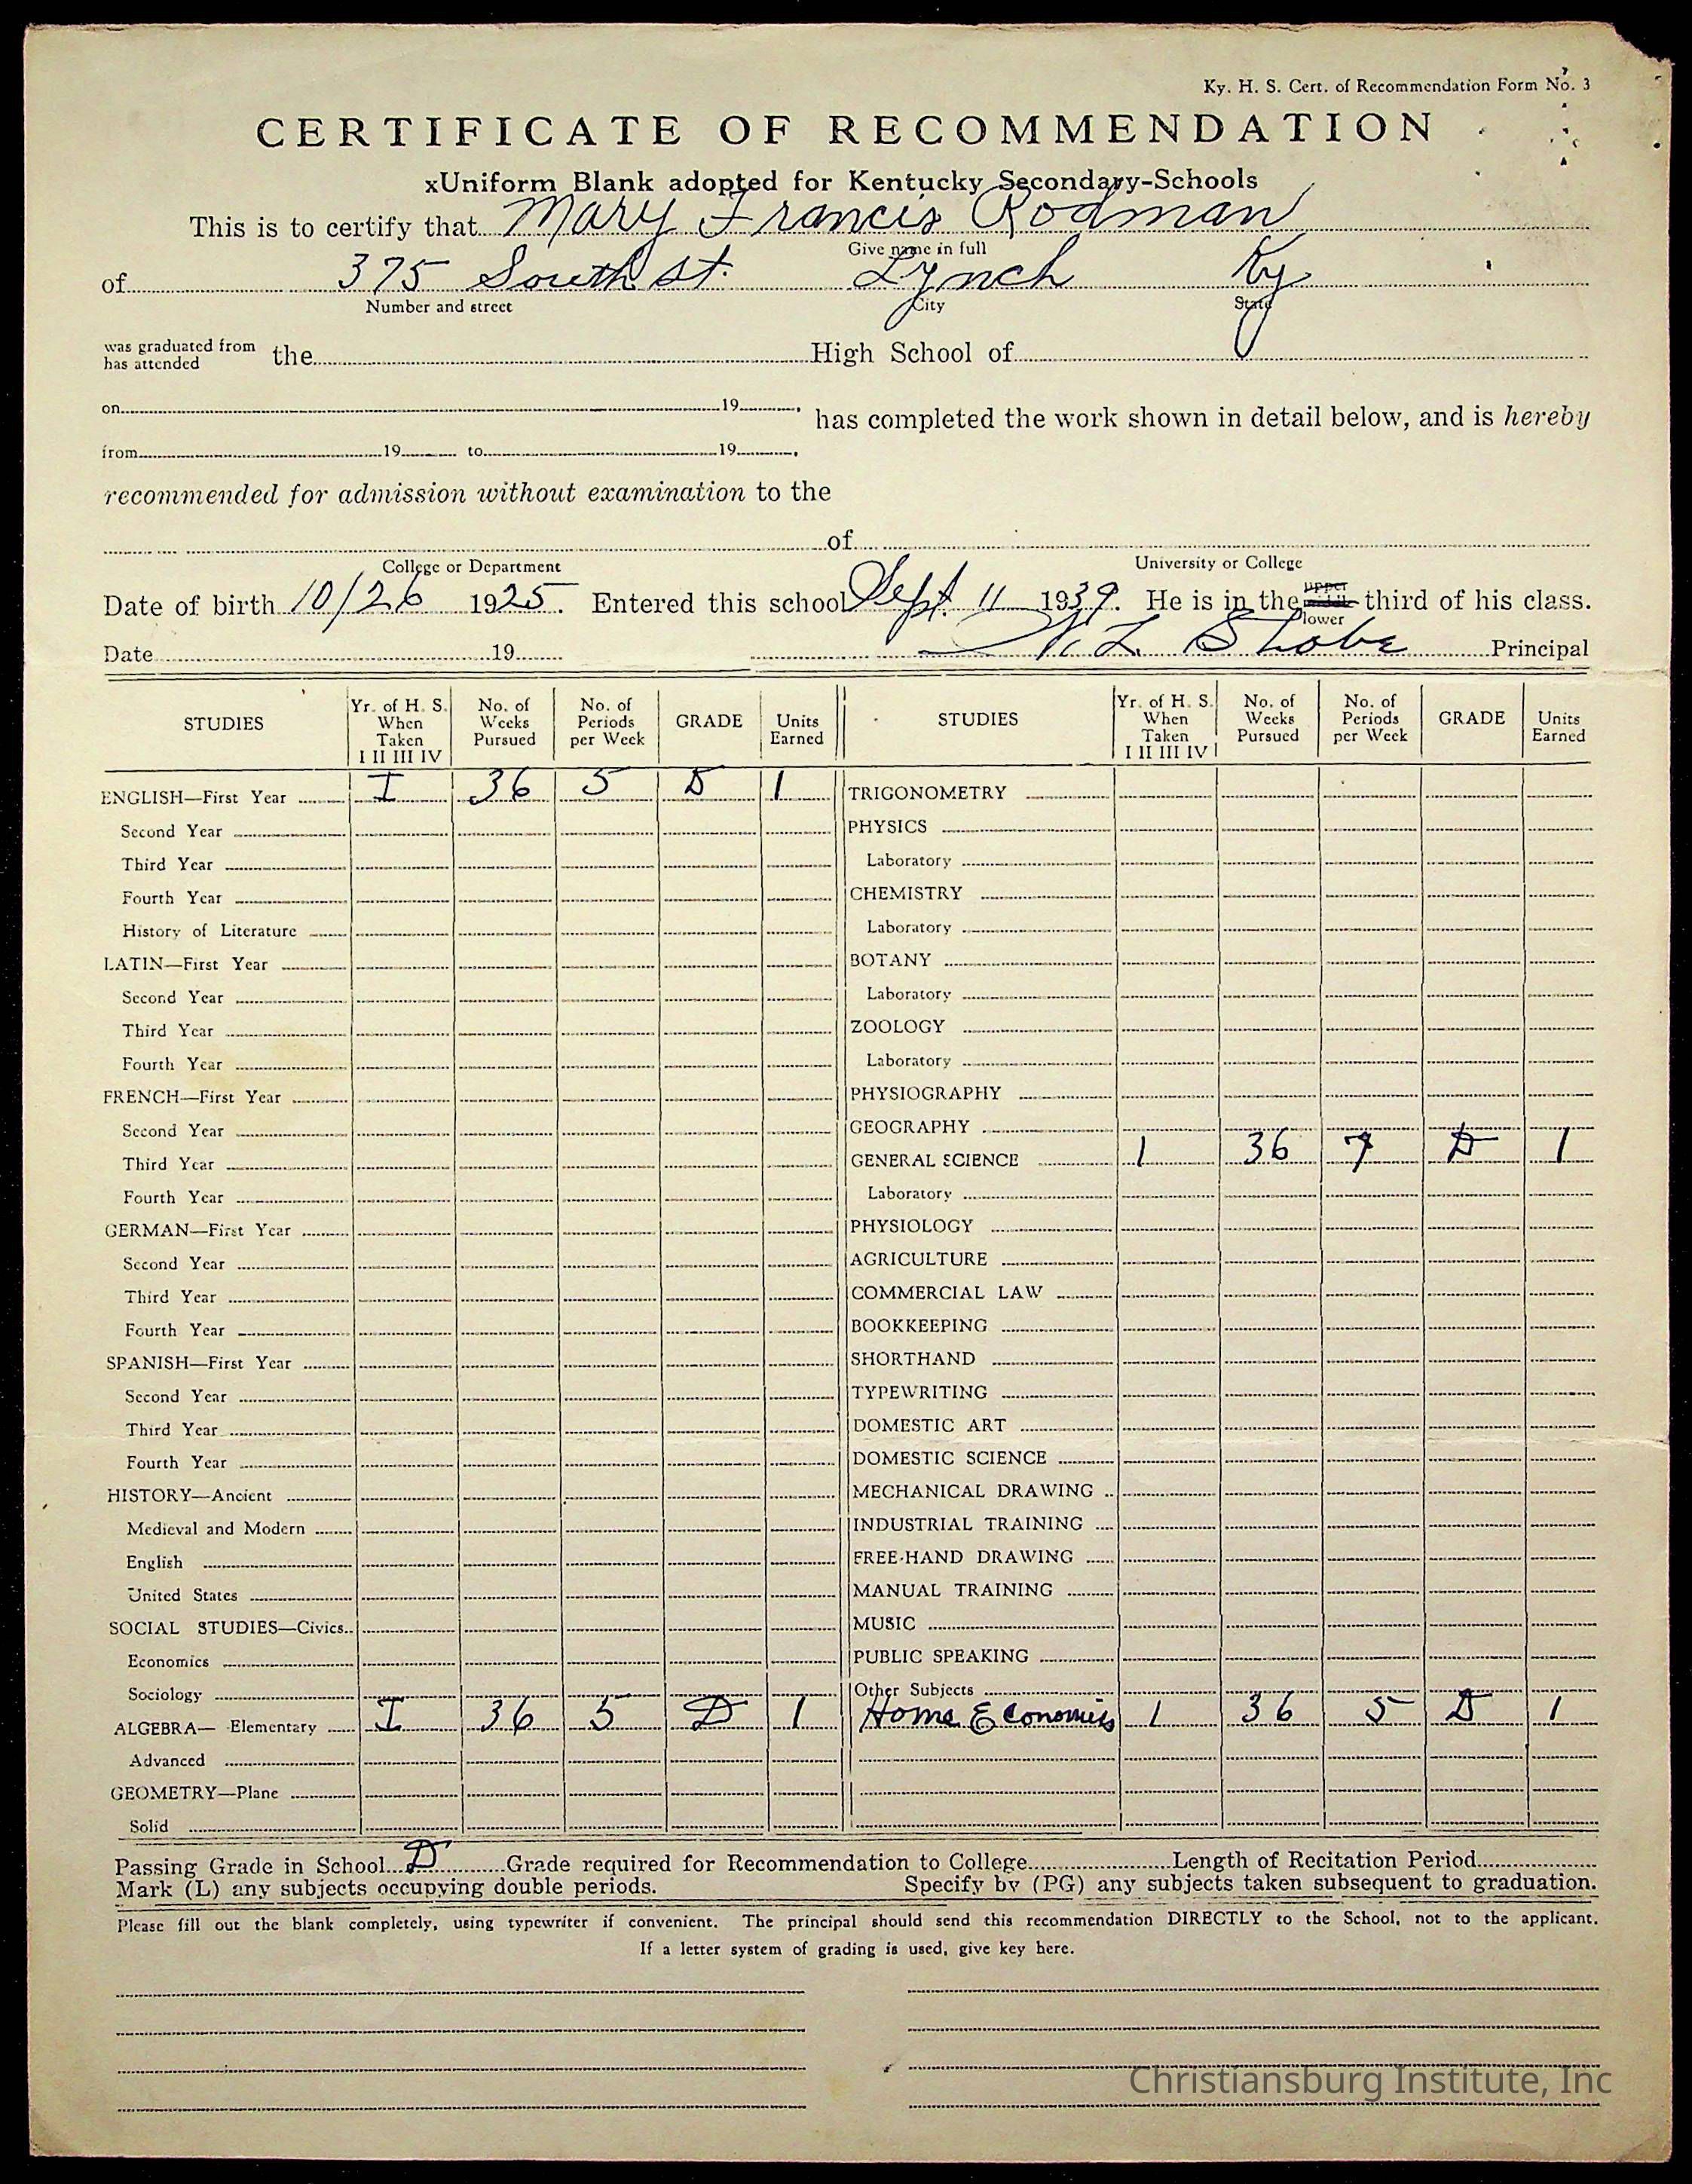 Ky. H. S. Cert. of Recommendation Form No. 3
CERTIFICATE OF RECOMMENDATION
xUniform Blank adopted for Kentucky Secondary-Schools
This is to certify that Mary Francis Rodman
Give name in full
of 375 South St. Lynch Ky
Number and street City State
was graduated from
has attended the High School of
on 19 , has completed the work shown in detail below, and is hereby
from 19 to 19 ,
recommended for admission without examination to the
of
College or Department University or College
Date of birth 10/26 1925. Entered this school Sept. 11 1939. He is in the upper lower third of his class.
Date 19 Principal
STUDIES Yr. of H. S. When Taken I II III IV No. of Weeks Pursued No. of Periods per Week GRADE Units Earned STUDIES Yr. of H. S. When Taken I II III IV No. of Weeks Pursued No. of Periods per Week GRADE Units Earned
ENGLISH—First Year I 36 5 D 1 TRIGONOMETRY
Second Year PHYSICS
Third Year Laboratory
Fourth Year CHEMISTRY
History of Literature Laboratory
LATIN—First Year BOTANY
Second Year Laboratory
Third Year ZOOLOGY
Fourth Year Laboratory
FRENCH—First Year PHYSIOGRAPHY
Second Year GEOGRAPHY
Third Year GENERAL SCIENCE 1 36 7 D 1
Fourth Year Laboratory
GERMAN—First Year PHYSIOLOGY
Second Year AGRICULTURE
Third Year COMMERCIAL LAW
Fourth Year BOOKKEEPING
SPANISH—First Year SHORTHAND
Second Year TYPEWRITING
Third Year DOMESTIC ART
Fourth Year DOMESTIC SCIENCE
HISTORY—Ancient MECHANICAL DRAWING
Medieval and Modern INDUSTRIAL TRAINING
English FREE-HAND DRAWING
United States MANUAL TRAINING
SOCIAL STUDIES—Civics MUSIC
Economics PUBLIC SPEAKING
Sociology Other Subjects
ALGEBRA— Elementary I 36 5 D 1 Home Economics 1 36 5 D 1
Advanced
GEOMETRY—Plane
Solid
Passing Grade in School D Grade required for Recommendation to College Length of Recitation Period
Mark (L) any subjects occupying double periods. Specify by (PG) any subjects taken subsequent to graduation.
Please fill out the blank completely, using typewriter if convenient. The principal should send this recommendation DIRECTLY to the School, not to the applicant.
If a letter system of grading is used, give key here.
Christiansburg Institute, Inc